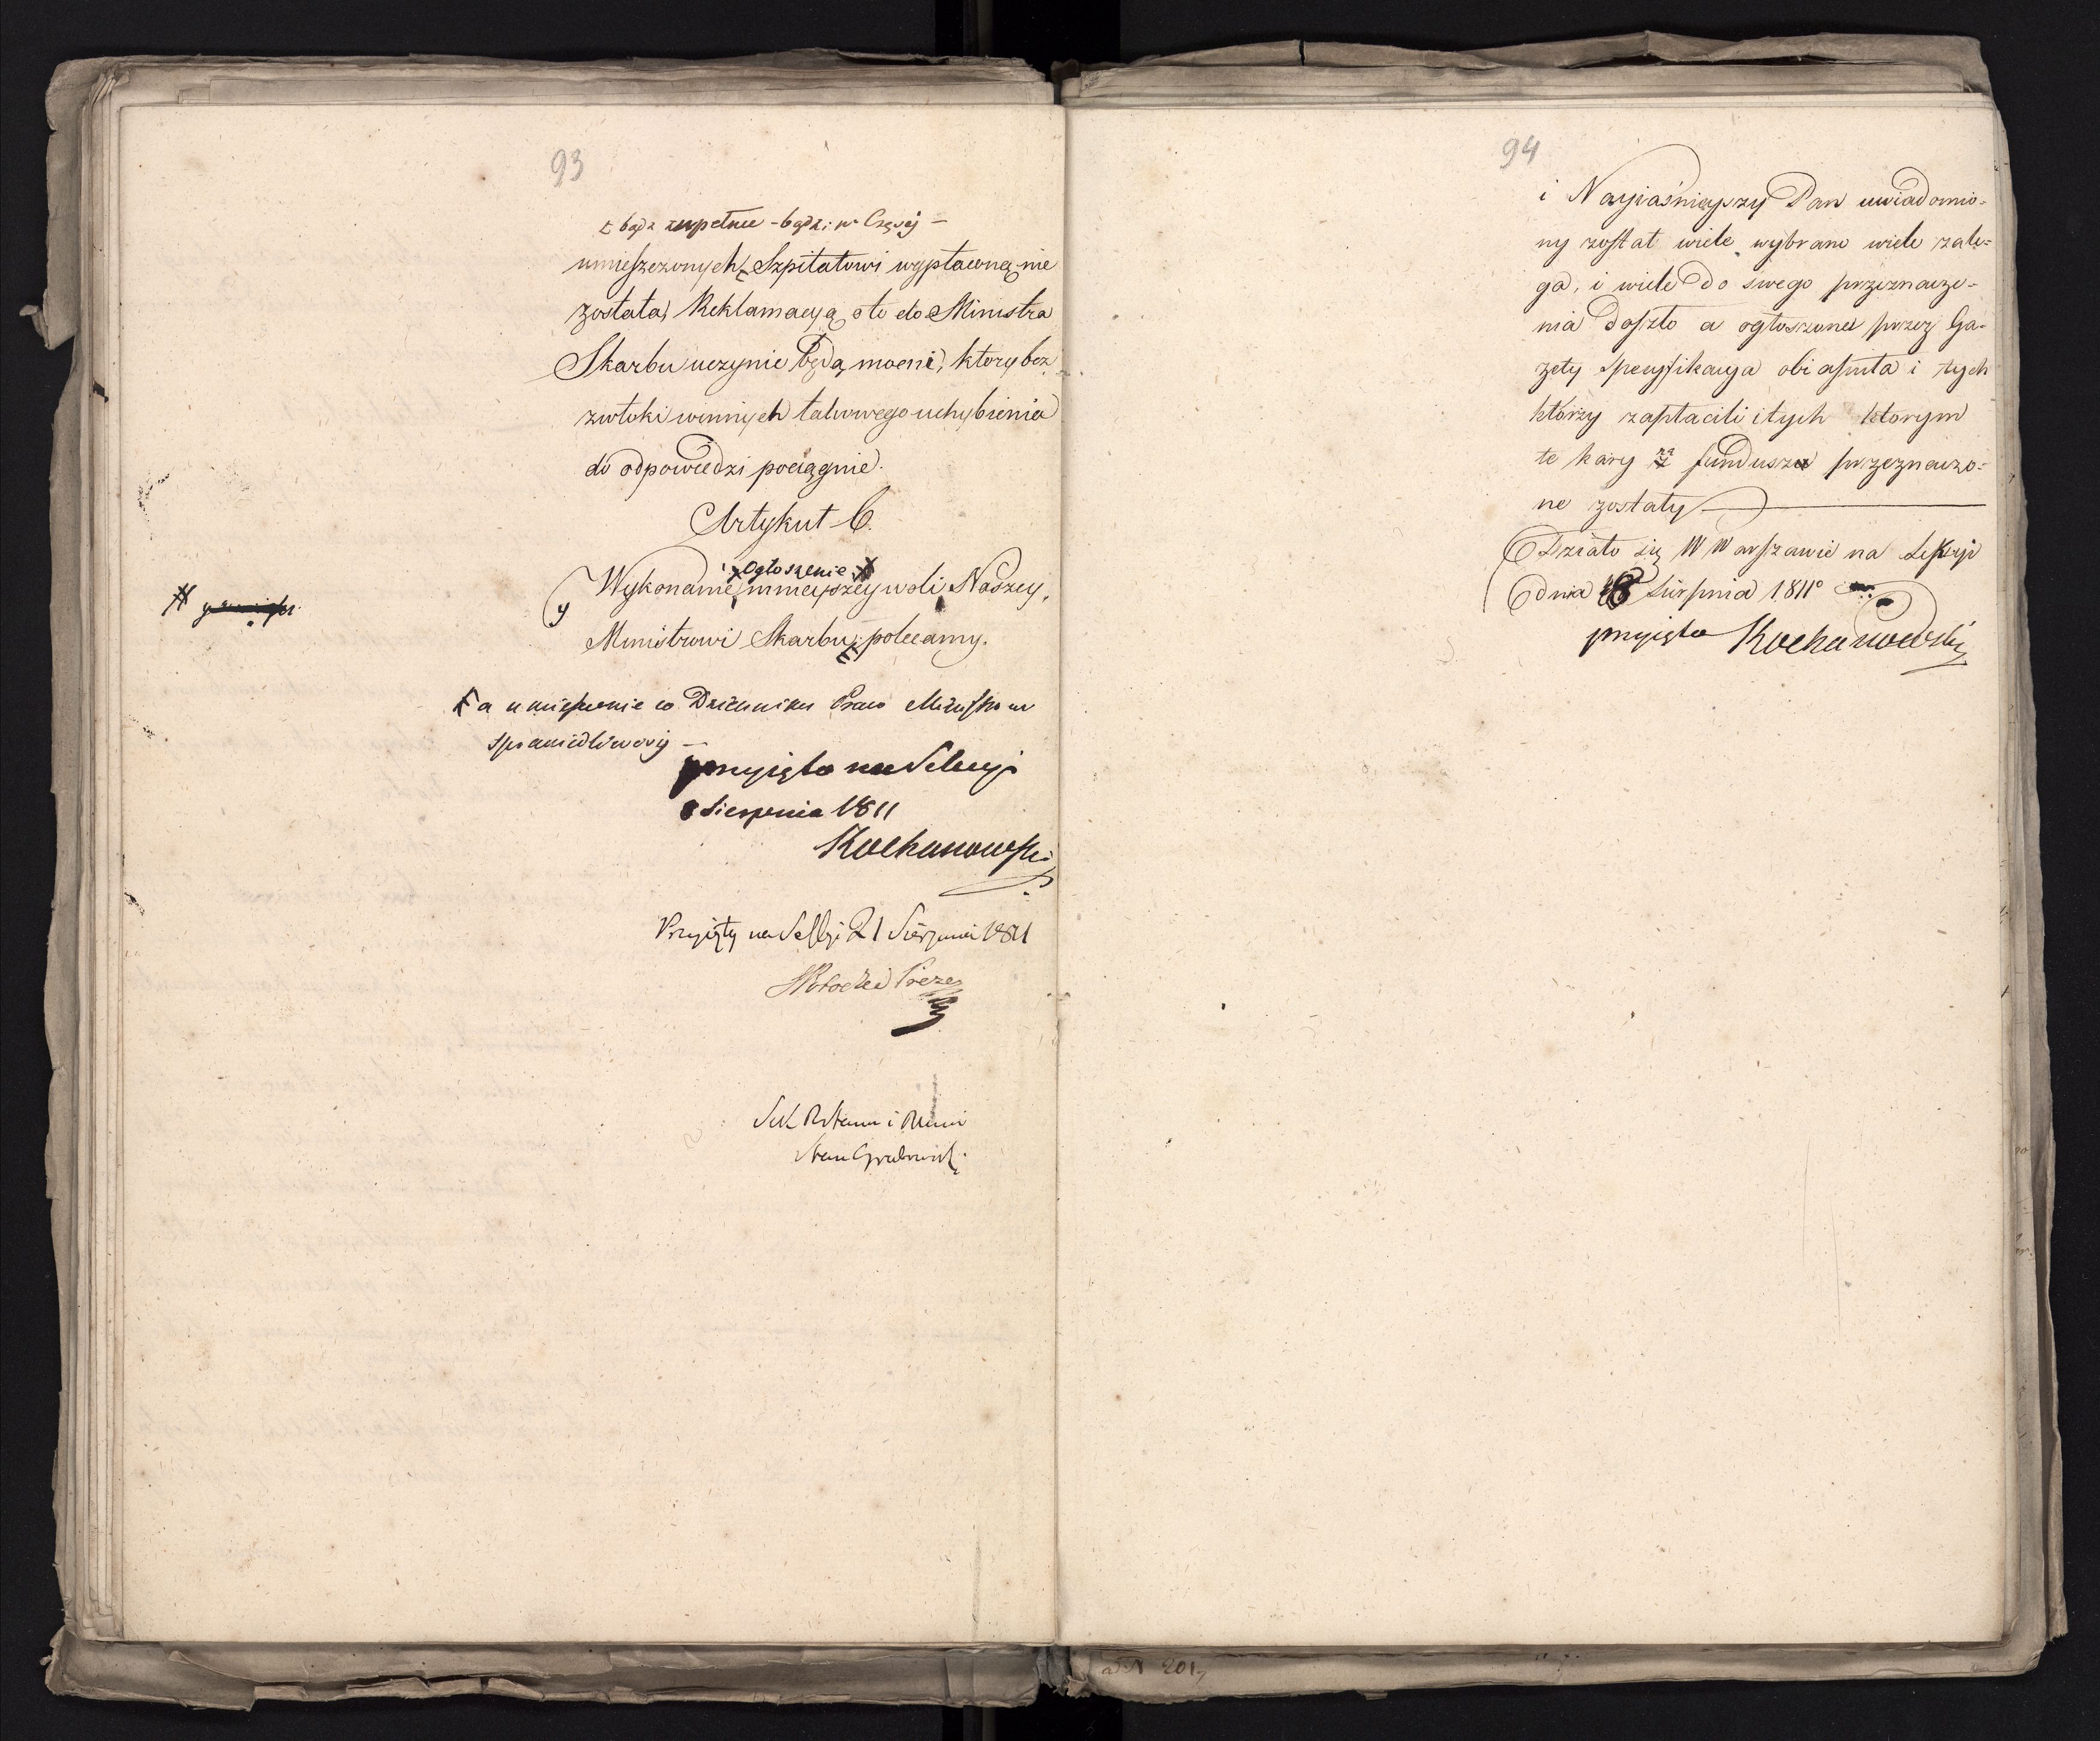 93
będź zupełnie – bądź: w Częsci –
umieszczonych, Szpitalowi wypłaconą nie
została, Reklamacyą o to do Ministra
Skarbu uczynić będą mocni, który bez
zwłoki winnych takowego uchybienia
do odpowiedzi pociągnie.
Artykuł 6.
i ogłoszenie
Wykonanie ninieyszey woli Naszey,
Ministrowi Skarbu, polecamy.
a umieszczenie w Dzienniku Praw Ministrowi
sprawiedliwości –
przyięto na Sessyi
8 Sierpnia 1811
Kochanowski
Przyięty na Sessyi 21 Sierpnia 1811
Potocki Prezes
94
i Nayiaśnieyszy Pan uwiadomio-
ny został wiele wybrano wiele zale-
ga, i wiele do swego przeznacze-
nia doszło a ogłoszona przez Ga-
zety specyfikacya obiaśniła i tych
którzy zapłacili i tych którym
te kary na fundusze przeznaczo-
ne zostały
Działo się W Warszawie na Sessyi
dnia 8 Sierpnia 1811º
przyięto Kochanowski
ad N 201